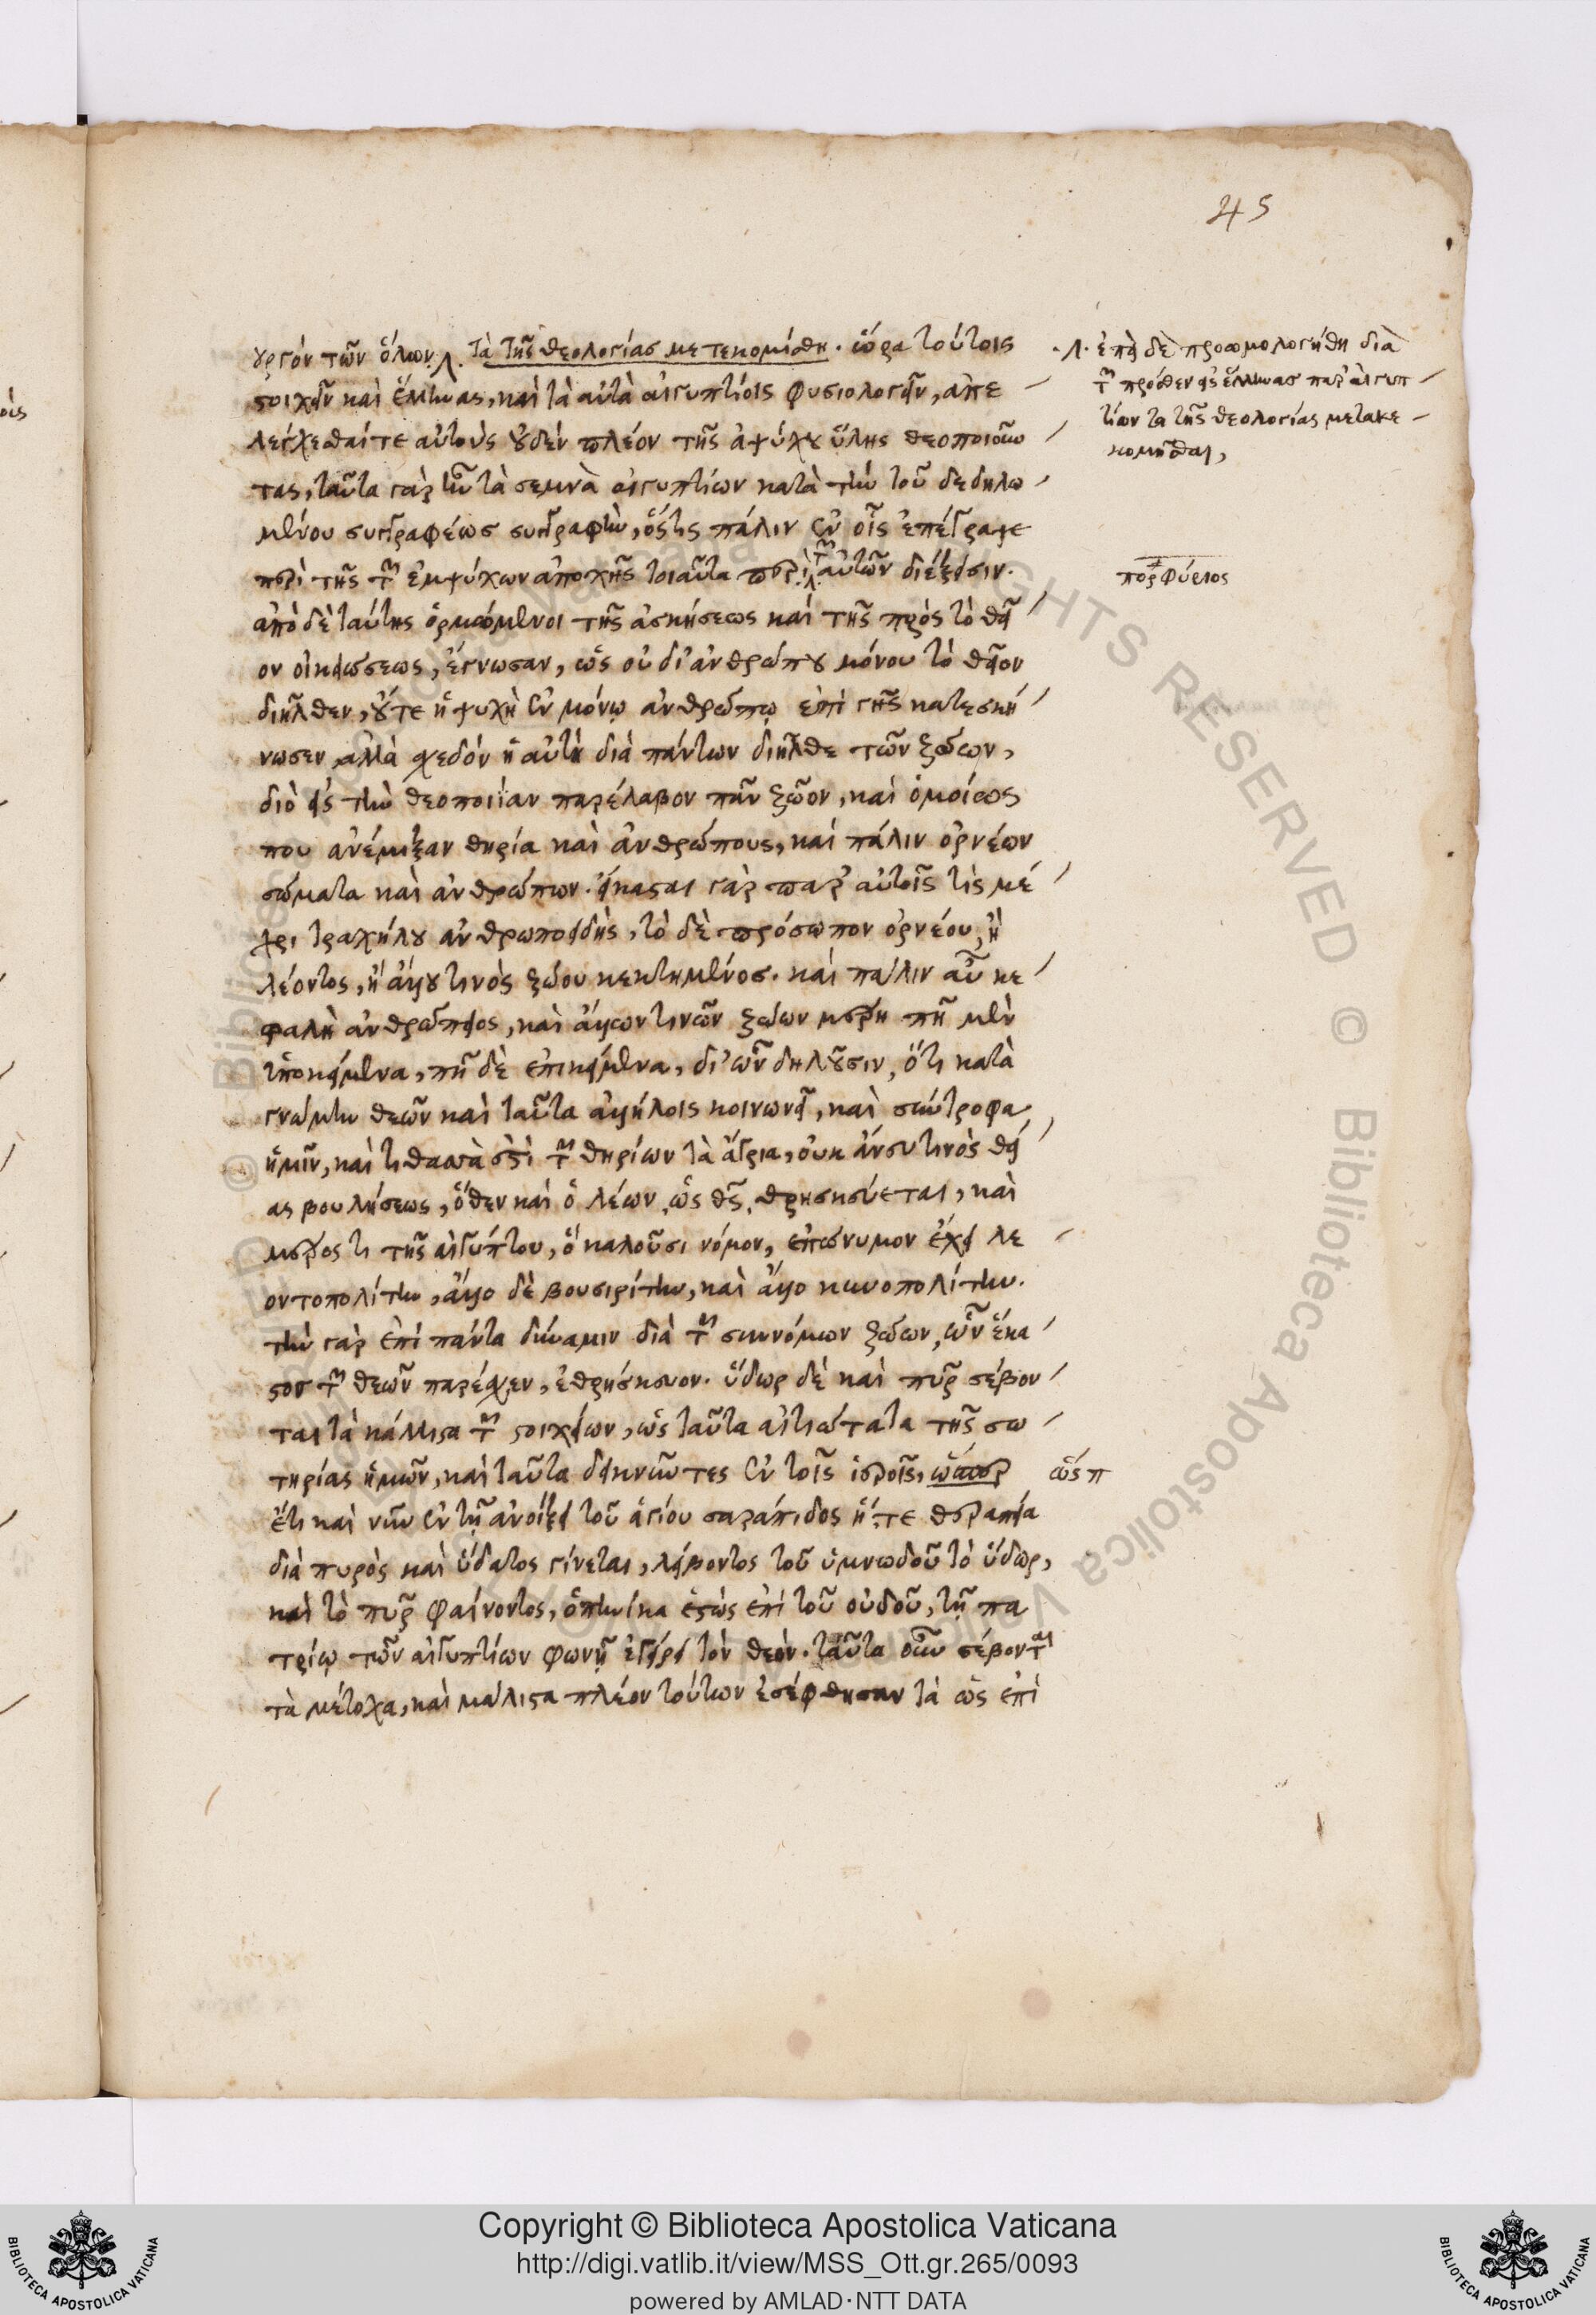 45
υργόν τῶν ὅλων. Λ. τὰ τῆς θεολογίας μετεκομίσθη. ὥρα τούτοις
στοιχεῖν καὶ ἕλληνας, καὶ τὰ αὐτὰ αἰγυπτίοις φυσιολογεῖν, ἀπε
λέγχεσθαίτε αὐτοὺς οὐδὲν πλέον τῆς ἀψύχου ὕλης θεοποιοῦν
τας, ταῦτα γὰρ ἦν τὰ σεμνὰ αἰγυπτίων κατὰ τὴν τοῦ δεδηλω
μένου συγγραφέως συγγραφὴν, ὅστις πάλιν ἐν οἷς ἐπέγραψε
περὶ τῆς τῶν ἐμψύχων ἀποχῆς τοιαῦτα περὶ τῶν αὐτῶν διέξεισιν.
ἀπὸ δὲ ταύτης ὁρμώμενοι τῆς ἀσκήσεως καὶ τῆς πρὸς τὸ θεῖ
ον οἰκειώσεως, ἔγνωσαν, ὡς οὐ δι' ἀνθρώπου μόνου τὸ θεῖον
διῆλθεν, οὔτε ἡ ψυχὴ ἐν μόνῳ ἀνθρώπῳ ἐπὶ γῆς κατεσκή
νωσεν, ἀλλὰ σχεδὸν ἡ αὐτὴ διὰ πάντων διῆλθε τῶν ζώων,
διὸ εἰς τὴν θεοποιίαν παρέλαβον πᾶν ζῶον, καὶ ὁμοίως
που ἀνέμιξαν θηρία καὶ ἀνθρώπους, καὶ πάλιν ὀρνέων
σώματα καὶ ἀνθρώπων. εἴκασται γὰρ παρ' αὐτοῖς τὶς μέ
χρι τραχήλου ἀνθρωποειδὴς, τὸ δὲ πρόσωπον ὀρνέου, ἢ
λέοντος, ἢ ἄλλου τινὸς ζώου κεκτημένος. καὶ πάλιν αὖ κε
φαλὴ ἀνθρώπειος, καὶ ἄλλων τινῶν ζώων μέρη πῆ μὲν
ὑποκείμενα, πῆ δὲ ἐπικείμενα, δι' ὧν δηλοῦσιν, ὅτι κατὰ
γνώμην θεῶν καὶ ταῦτα ἀλλήλοις κοινωνεῖ, καὶ σύντροφα
ἡμῖν, καὶ τιθασσὰ ἐστὶ τῶν θηρίων τὰ ἄγρια, οὐκ ἄνευ τινὸς θεί
ας βουλήσεως, ὅθεν καὶ ὁ λέων, ὡς θς, θρησκεύεται, καὶ
μέρος τι τῆς αἰγύπτου, ὃ καλοῦσι νόμον, ἐπώνυμον ἔχει λε
οντοπολίτην, ἄλλο δὲ βουσιρίτην, καὶ ἄλλο κυνοπολίτην.
τὴν γὰρ ἐπὶ πάντα δύναμιν διὰ τῶν συννόμων ζώων, ὧν ἕκα
στος τῶν θεῶν παρέσχεν, ἐθρήσκευον. ὕδωρ δὲ καὶ πῦρ σέβον
ται τὰ κάλλιστα τῶν στοιχείων, ὡς ταῦτα αἰτιώτατα τῆς σω
τηρίας ἡμῶν, καὶ ταῦτα δεικνῦντες ἐν τοῖς ἱεροῖς, ὥσπερ
ἔτι καὶ νῦν ἐν τῇ ἀνοίξει τοῦ ἁγίου σαράπιδος ἥ τε θεραπεία
διὰ πυρὸς καὶ ὕδατος γίνεται, λείβοντος τοῦ ὑμνωδοῦ τὸ ὕδωρ,
καὶ τὸ πῦρ φαίνοντος, ὁπηνίκα ἑστὼς ἐπὶ τοῦ οὐδοῦ, τῇ πα
τρίῳ τῶν αἰγυπτίων φωνῇ ἐγείρει τὸν θεόν. ταῦτα οὖν σέβονται
τὰ μέτοχα, καὶ μάλιστα πλέον τούτων ἐσέφθησαν τὰ ὡς ἐπὶ
.Λ. ἐπεὶ δὲ προωμολογήθη διὰ
τῶν πρόσθεν εἰς ἕλληνας παρ' αἰγυπ
τίων τὰ τῆς θεολογίας μετακε
κομῆσθαι,
πορφύριος
ὥσπ
Copyright © Biblioteca Apostolica Vaticana
http://digi.vatlib.it/view/MSS_Ott.gr.265/0093
powered by AMLAD·NTT DATA
BIBLIOTECA APOSTOLICA VATICANA
BIBLIOTECA APOSTOLICA VATICANA